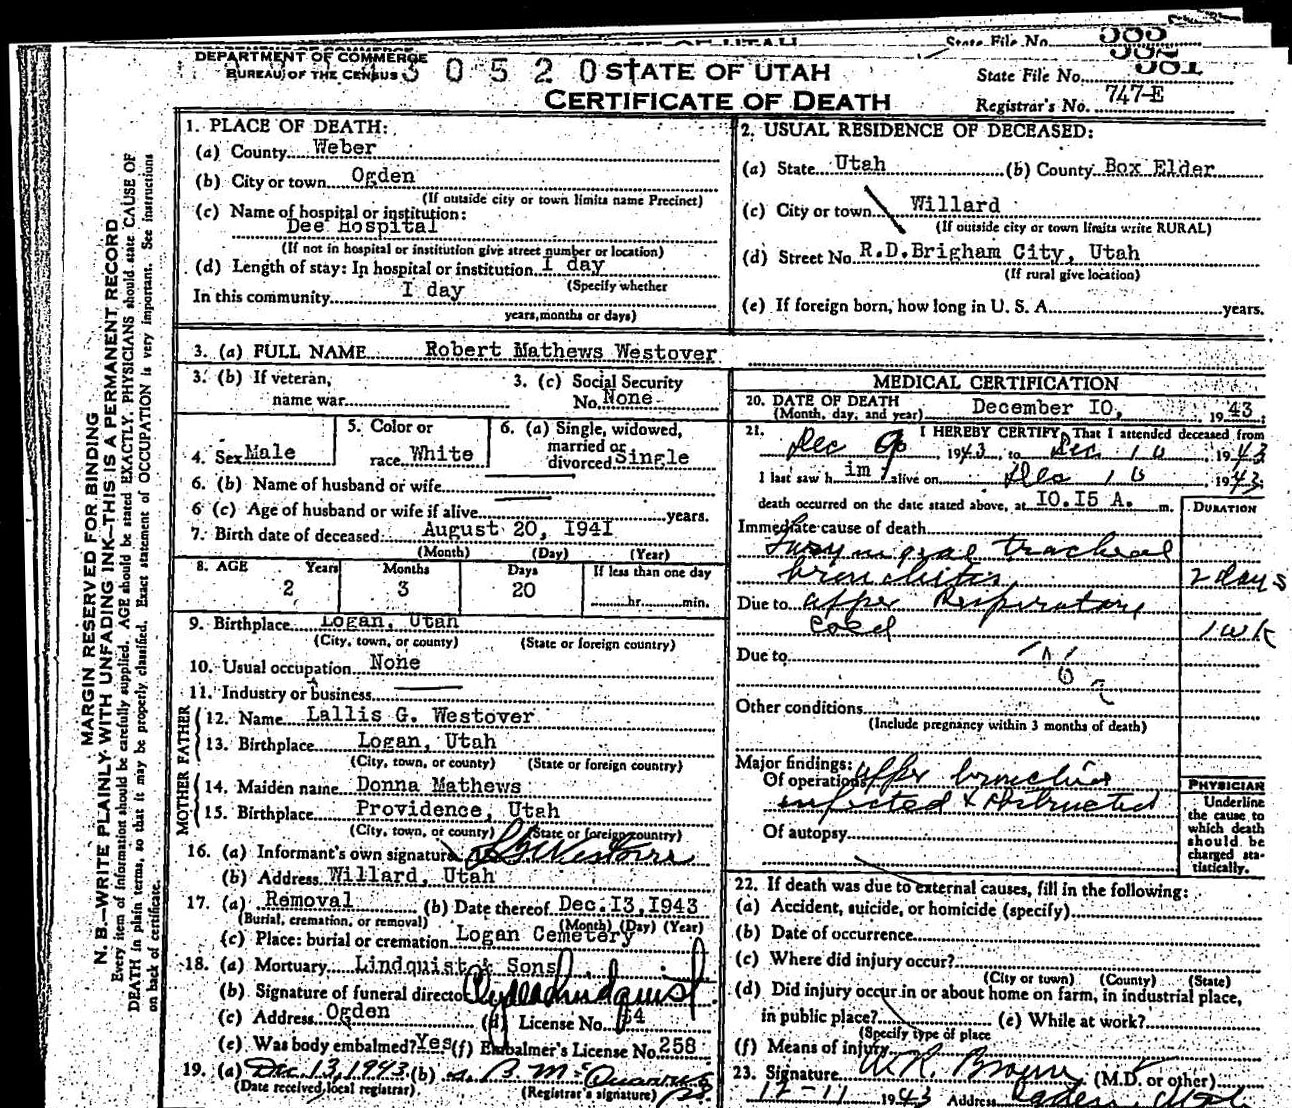 State File No. 383
382
DEPARTMENT OF COMMERCE
BUREAU OF THE CENSUS
3 0 5 2 0
STATE OF UTAH
CERTIFICATE OF DEATH
State File No. 381
Registrar's No. 747-E
MARGIN RESERVED FOR BINDING
N. B.—WRITE PLAINLY WITH UNFADING INK—THIS IS A PERMANENT RECORD
Every item of information should be carefully supplied. AGE should be stated EXACTLY. PHYSICIANS should state CAUSE OF
DEATH in plain terms, so that it may be properly classified. Exact statement of OCCUPATION is very important. See instructions
on back of certificate.
1. PLACE OF DEATH:
(a) County Weber
(b) City or town Ogden
(If outside city or town limits name Precinct)
(c) Name of hospital or institution:
Dee Hospital
(If not in hospital or institution give street number or location)
(d) Length of stay: In hospital or institution I day
(Specify whether
In this community I day
years, months or days)
2. USUAL RESIDENCE OF DECEASED:
(a) State Utah (b) County Box Elder
(c) City or town Willard
(If outside city or town limits write RURAL)
(d) Street No. R.D. Brigham City, Utah
(If rural give location)
(e) If foreign born, how long in U. S. A. years.
3. (a) FULL NAME Robert Mathews Westover
3. (b) If veteran,
name war
3. (c) Social Security
No. None
4. Sex Male
5. Color or
race White
6. (a) Single, widowed,
married or
divorced Single
6. (b) Name of husband or wife
6 (c) Age of husband or wife if alive years.
7. Birth date of deceased August 20, I94I
(Month) (Day) (Year)
8. AGE Years Months Days If less than one day
2 3 20 hr. min.
9. Birthplace Logan, Utah
(City, town, or county) (State or foreign country)
10. Usual occupation None
11. Industry or business
FATHER
12. Name Lallis G. Westover
13. Birthplace Logan, Utah
(City, town, or county) (State or foreign country)
MOTHER
14. Maiden name Donna Mathews
15. Birthplace Providence, Utah
(City, town, or county) (State or foreign country)
16. (a) Informant's own signature Westover
(b) Address Willard, Utah
17. (a) Removal (b) Date thereof Dec. I3, 1943
(Burial, cremation, or removal) (Month) (Day) (Year)
(c) Place: burial or cremation Logan Cemetery
18. (a) Mortuary Lindquist & Sons
(b) Signature of funeral director Clyde Lindquist
(c) Address Ogden (d) License No. 64
(e) Was body embalmed? Yes (f) Embalmer's License No. 258
19. (a) Dec. 13, 1943 (b)
(Date received local registrar) (Registrar's signature)
MEDICAL CERTIFICATION
20. DATE OF DEATH
(Month, day, and year) December IO, 1943
21. I HEREBY CERTIFY, That I attended deceased from
Dec 9 1943, to Dec 10 1943
I last saw him alive on Dec 10 1943;
death occurred on the date stated above, at IO.I5 A. m.
DURATION
Immediate cause of death
Laryngeal tracheal
bronchitis 2 days
Due to upper Respiratory
cold 1 wk
Due to
Other conditions
(Include pregnancy within 3 months of death)
Major findings:
Of operations upper bronchus
infected & obstructed
Of autopsy
PHYSICIAN
Underline
the cause to
which death
should be
charged sta-
tistically.
22. If death was due to external causes, fill in the following:
(a) Accident, suicide, or homicide (specify)
(b) Date of occurrence
(c) Where did injury occur?
(City or town) (County) (State)
(d) Did injury occur in or about home on farm, in industrial place,
in public place? (e) While at work?
(Specify type of place
(f) Means of injury
23. Signature W.R. Brown (M.D. or other)
12-11 1943 Address Ogden, Utah